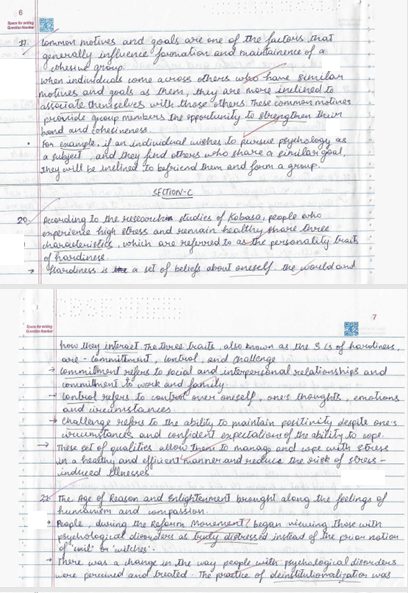 6
Space for writing
Question Number
17. Common motives and goals are one of the factors that
generally influence formation and maintainence of a
cohesive group.
When individuals come across others who have similar
motives and goals as them, they are more inclined to
associate themselves with those others. These common motives
provide group members the opportunity to strengthen their
bond and cohesiveness.
For example, if an individual wishes to pursue psychology as
a subject, and they find others who share a similar goal,
they will be inclined to befriend them and form a group.
SECTION-C
20. According to the research studies of Kobasa, people who
experience high stress and remain healthy share three
characteristics, which are referred to as the personality traits
of hardiness.
→ Hardiness is a set of beliefs about oneself, the world and
7
Space for writing
Question Number
how they interact. The three traits, also known as the 3 Cs of hardiness,
are - commitment, control, and challenge
→ Commitment refers to social and interpersonal relationships and
commitment to work and family
→ Control refers to control over oneself, one's thoughts, emotions
and circumstances
→ Challenge refers to the ability to maintain positivity despite one's
circumstances and confident expectations of the ability to cope.
→ These set of qualities allow them to manage and cope with stress
in a healthy and efficient manner and reduce the risk of stress-
induced illnesses
22. The Age of Reason and Enlightenment brought along the feelings of
humanism and compassion.
People, during the Reform Movement, began viewing those with
psychological disorders as truly distressed instead of the prior notion
of 'evil' or 'witches'.
→ There was a change in the way people with psychological disorders
were perceived and treated. The practice of deinstitutionalization was